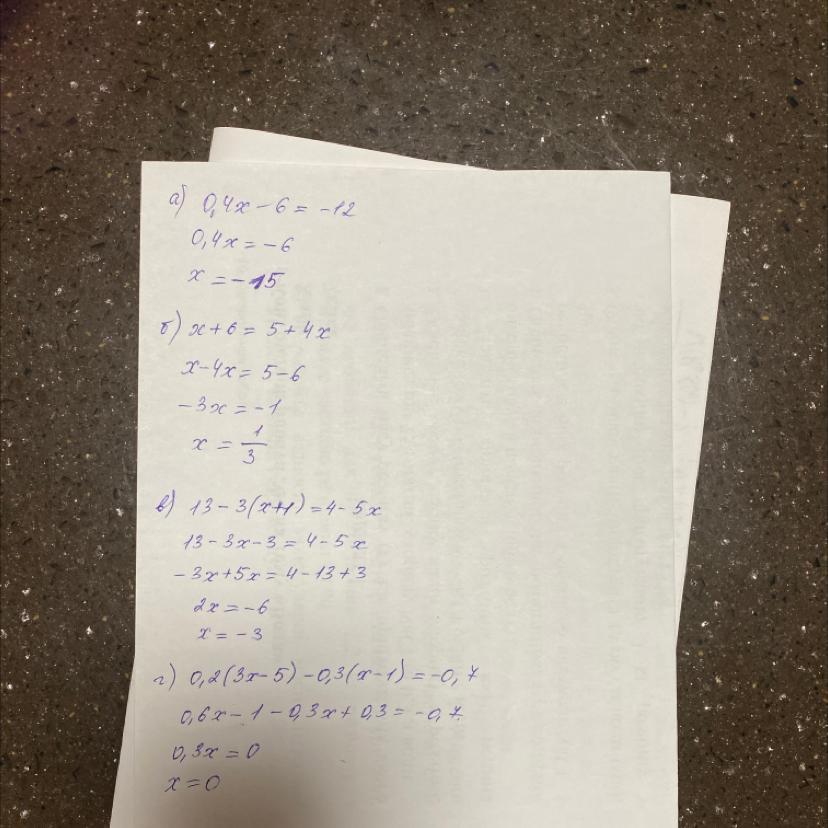 а) 0,4x - 6 = -12
0,4x = -6
x = -15
б) x + 6 = 5 + 4x
x - 4x = 5 - 6
-3x = -1
x = 1/3
в) 13 - 3(x+1) = 4 - 5x
13 - 3x - 3 = 4 - 5x
-3x + 5x = 4 - 13 + 3
2x = -6
x = -3
г) 0,2(3x - 5) - 0,3(x - 1) = -0,7
0,6x - 1 - 0,3x + 0,3 = -0,7
0,3x = 0
x = 0